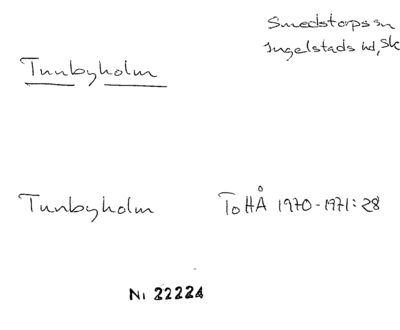 Smedstorps sn
Ingelstads hd, Sk
Tunbyholm
Tunbyholm ToHÅ 1970-1971:28
Nr 22224